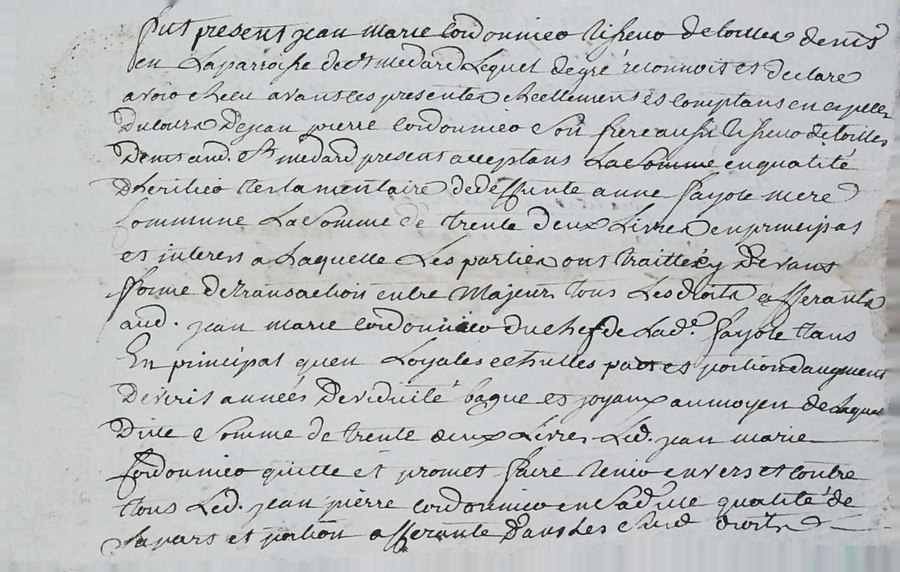 fut present jean marie Cordonnier tisseur de toilles demt
en La parroisse de St medard Lequel de gré reconnoit et declare
avoir eheu avant ces presentes reellement et comptans en espesses
Du cours De jean pierre Cordonnier son frere aussi tisseur de toilles
Demt aud. St medard present acceptans La somme en qualité
D'heritier testamentaire de deffunte anne fayole mere
Commune La somme de trente deux Livres en principal
et interes a Laquelle Les parties ont traitté par
forme de transaction entre Majeurs tous Les droits afferants
aud. jean marie Cordonnier du chef de Lad. fayole tans
En principal qu'en Loyales echuttes part et portion d'augment
De vint années De viduité bague et joyaux au moyen de Laquelle
Ditte somme de trente deux Livres Led. jean marie
Cordonnier quitte et promet faire tenir envers et contre
tous Led. jean pierre Cordonnier en Lad'itte qualité de
sa part et portion afferante Dans Les susd droits